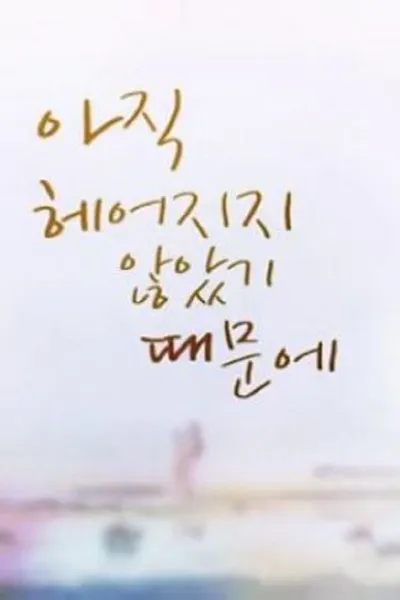 아직
헤어지지
않았기
때문에